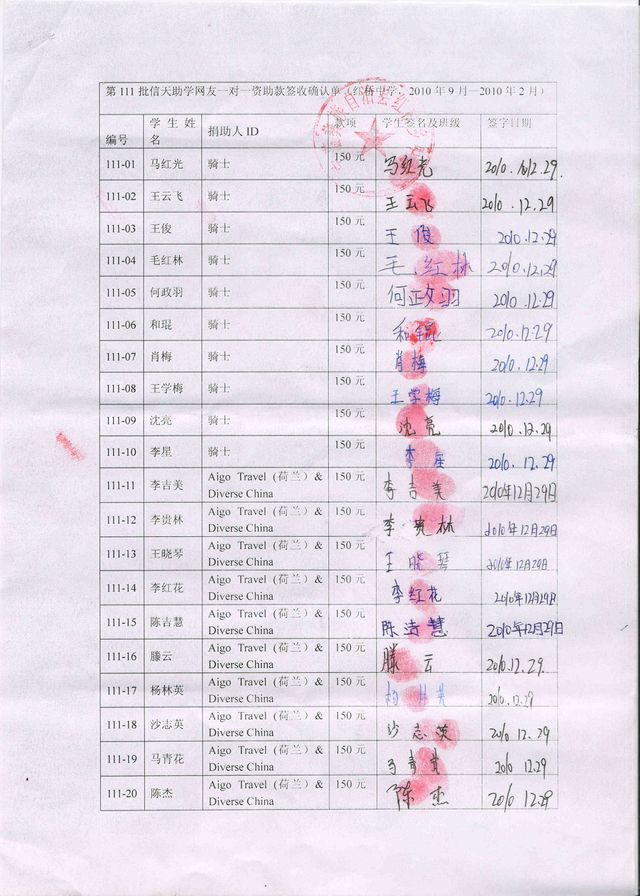 第 111 批信天助学网友一对一资助款签收确认单（红桥中学，2010 年 9 月—2010 年 2 月）
编号 学生姓名 捐助人 ID 款项 学生签名及班级 签字日期
111-01 马红光 骑士 150 元 马红光 2010.12.29.
111-02 王云飞 骑士 150 元 王云飞 2010.12.29
111-03 王俊 骑士 150 元 王俊 2010.12.29
111-04 毛红林 骑士 150 元 毛红林 2010.12.29
111-05 何政羽 骑士 150 元 何政羽 2010.12.29
111-06 和琨 骑士 150 元 和锟 2010.12.29
111-07 肖梅 骑士 150 元 肖梅 2010.12.29
111-08 王学梅 骑士 150 元 王学梅 2010.12.29
111-09 沈亮 骑士 150 元 沈亮 2010.12.29
111-10 李星 骑士 150 元 李星 2010.12.29
111-11 李吉美 Aigo Travel (荷兰）& Diverse China 150 元 李吉美 2010年12月29日
111-12 李贵林 Aigo Travel (荷兰）& Diverse China 150 元 李贵林 2010年12月29日
111-13 王晓琴 Aigo Travel (荷兰）& Diverse China 150 元 王晓琴 2010年12月29日
111-14 李红花 Aigo Travel (荷兰）& Diverse China 150 元 李红花 2010年12月29日
111-15 陈吉慧 Aigo Travel (荷兰）& Diverse China 150 元 陈洁慧 2010年12月29日
111-16 滕云 Aigo Travel (荷兰）& Diverse China 150 元 滕云 2010.12.29.
111-17 杨林英 Aigo Travel (荷兰）& Diverse China 150 元 杨林英 2010.12.29
111-18 沙志英 Aigo Travel (荷兰）& Diverse China 150 元 沙志英 2010.12.29
111-19 马青花 Aigo Travel (荷兰）& Diverse China 150 元 马青 2010.12.29
111-20 陈杰 Aigo Travel (荷兰）& Diverse China 150 元 陈杰 2010.12.29